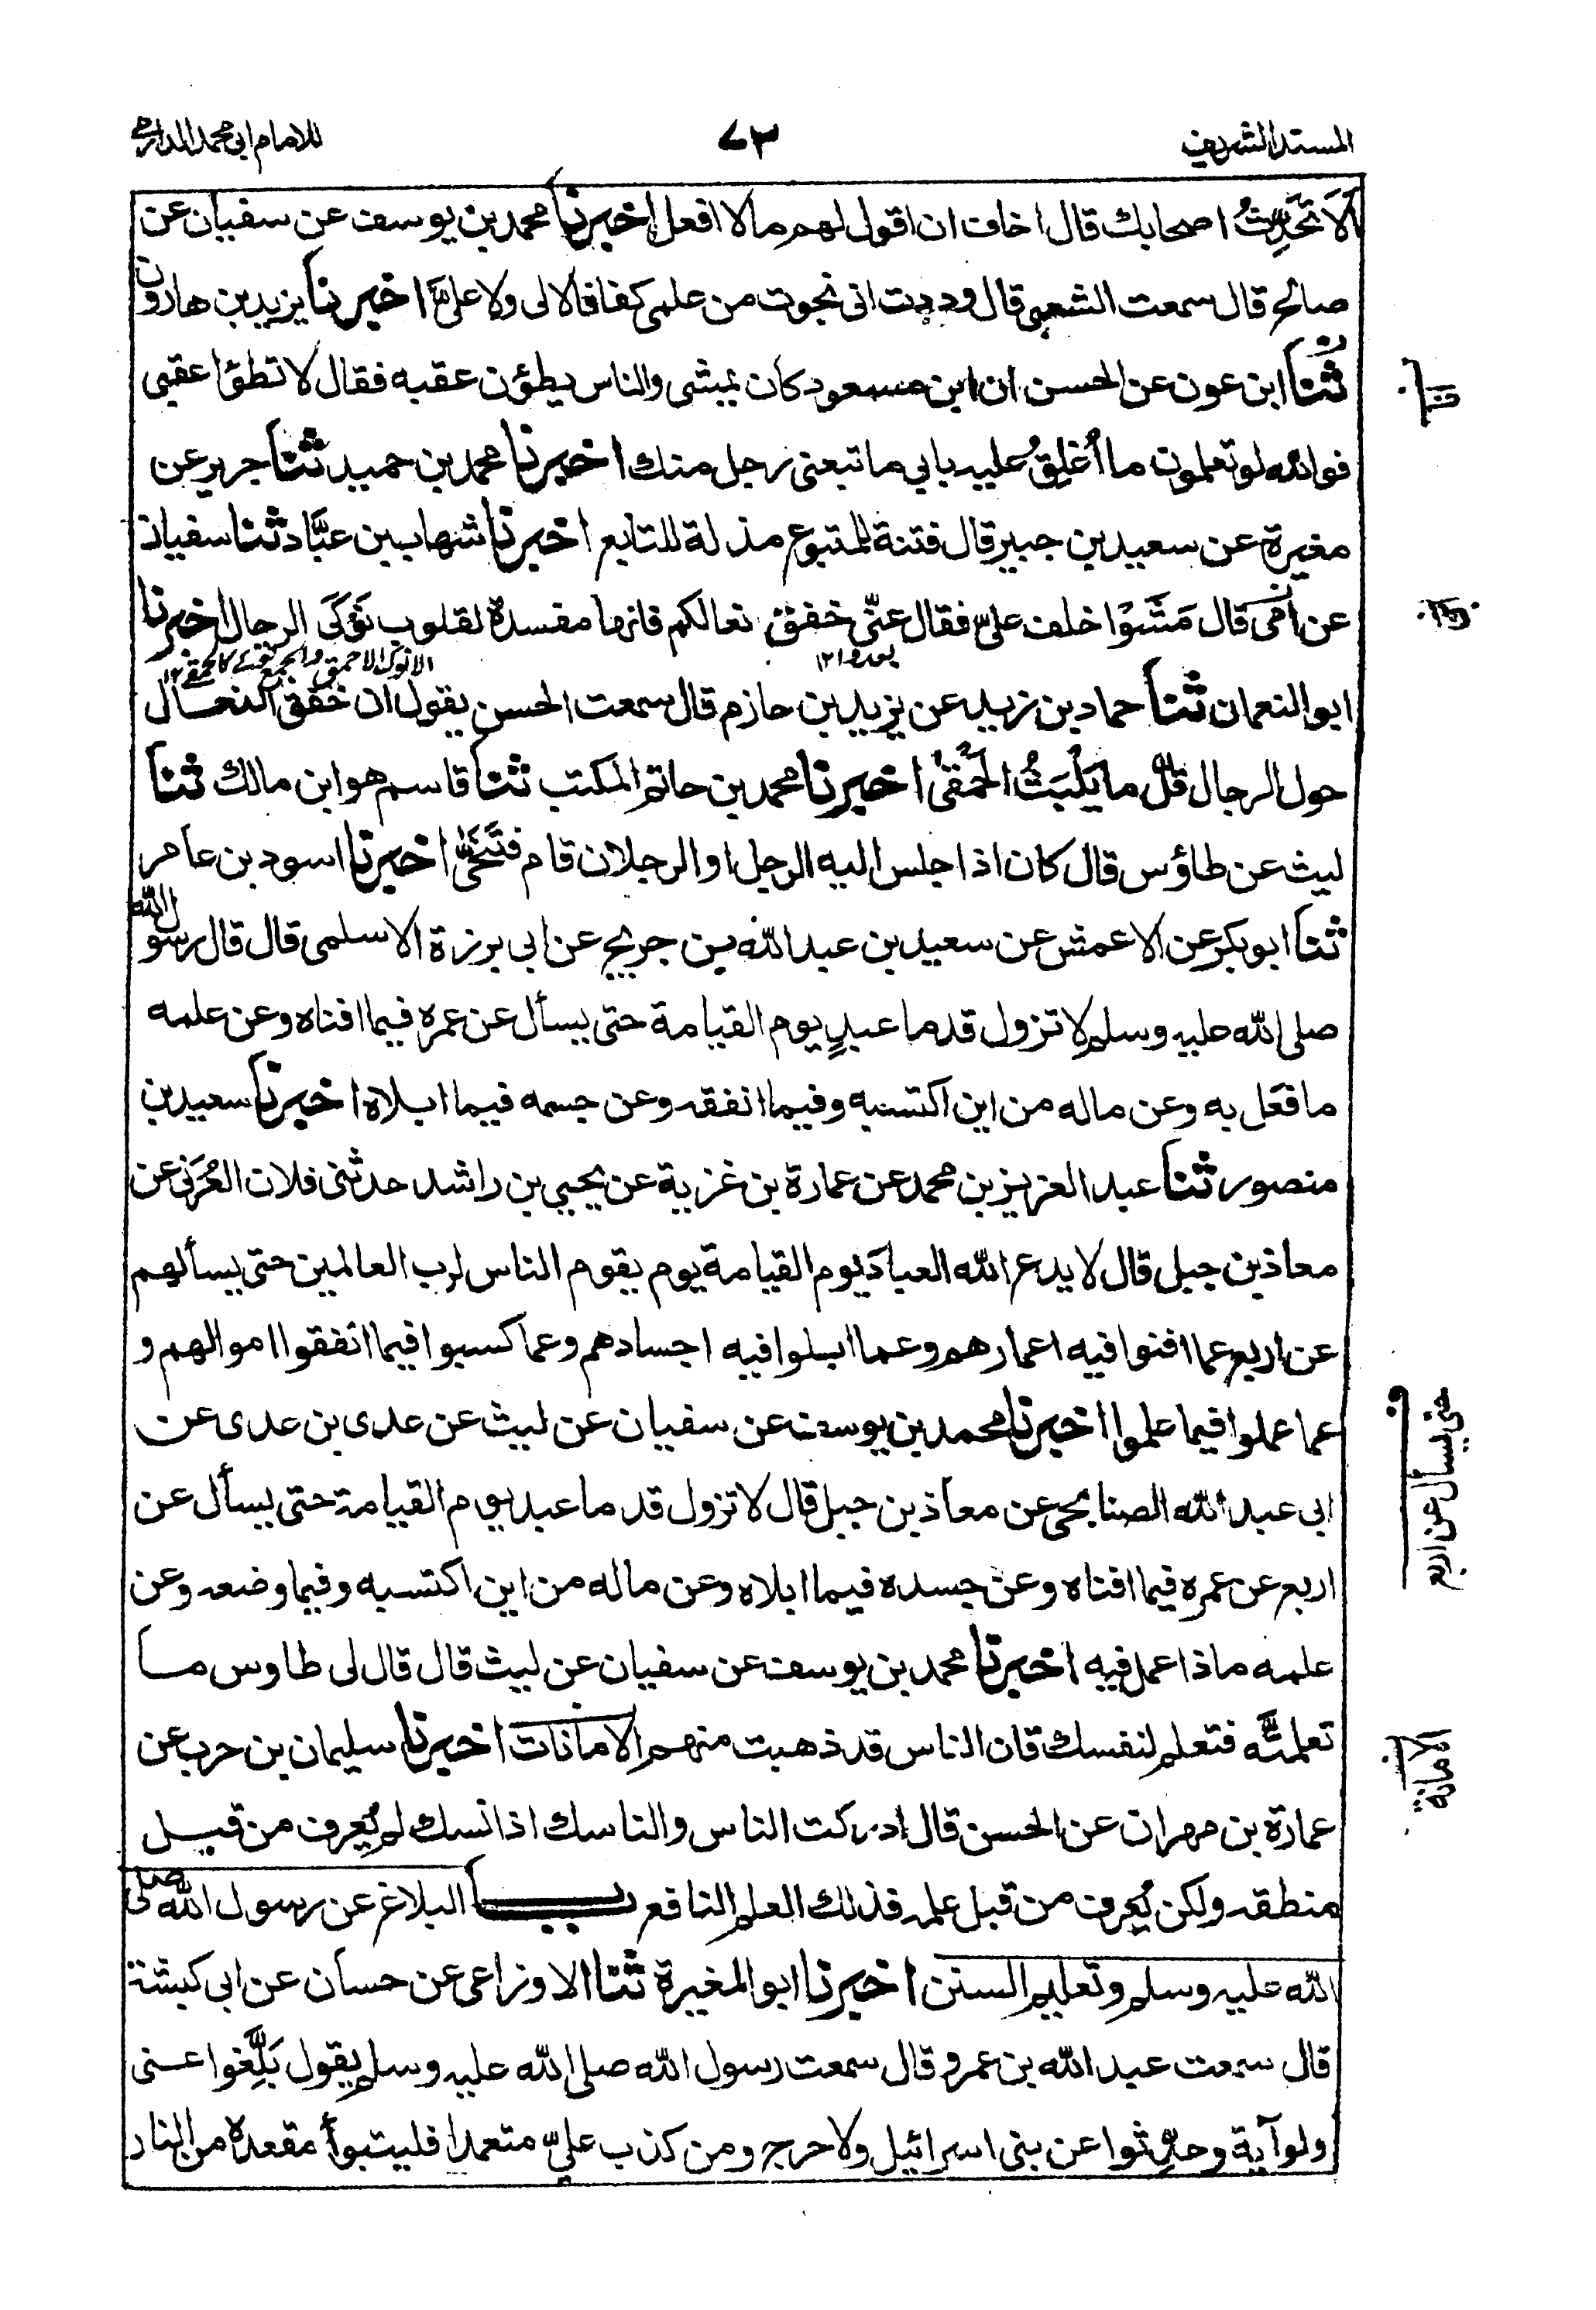 المسند الشريف
٧٣
للامام ابي محمد الدارمي
اَلَا تُحَدِّثُ اصحابك قال اخاف ان اقول لهم ما لا افعل اخبرنا محمد بن يوسف عن سفيان عن
صالح قال سمعت الشعبي قال وددت اني نجوت من علمي كفافا لا لي ولا عليَّ اخبرنا يزيد بن هارون
ثنا ابن عون عن الحسن ان ابن مسعود كان يمشي والناس يطؤن عقبه فقال لا تطؤا عقبي
فوالله لو تعلمون ما أُغلِقُ عليه بابي ما تبعني رجل منك اخبرنا محمد بن حميد ثنا جرير عن
مغيرة عن سعيد بن جبير قال فتنة للمتبوع مذلة للتابع اخبرنا شهاب بن عبَّاد ثنا سفيان
عن أمي قال مَشَوْا خلف عليّ فقال عنّي خفق نعالكم فانها مفسدة لقلوب نَوْكَى الرجال اخبرنا
بعدوا ١٢
الانوك الاحمق والجمع نوكى كالحمقى ١٢
ابو النعمان ثنا حماد بن زيد عن يزيد بن حازم قال سمعت الحسن يقول ان خفق النعال
حول الرجال قلَّ ما يَلْبَثُ الحَمْقٰى اخبرنا محمد بن حاتم المكتب ثنا قاسم هو ابن مالك ثنا
ليث عن طاؤس قال كان اذا جلس اليه الرجل او الرجلان قام فتَنَحّٰى اخبرنا اسود بن عامر
ثنا ابو بكر عن الاعمش عن سعيد بن عبد الله بن جريج عن ابي برزة الاسلمي قال قال رسول الله
صلى الله عليه وسلم لا تزول قدما عبدٍ يوم القيامة حتى يسأل عن عمره فيما افناه وعن علمه
ما فعَل به وعن ماله من اين اكتسبه وفيما انفقه وعن جسمه فيما ابلاه اخبرنا سعيد بن
منصور ثنا عبد العزيز بن محمد عن عمارة بن غزية عن يحيى بن راشد حدثني فلان العُرَني عن
معاذ بن جبل قال لا يدع الله العبادَ يوم القيامة يوم يقوم الناس لرب العالمين حتى يسألهم
عن اربع عما افنوا فيه اعمارهم وعما ابلوا فيه اجسادهم وعما كسبوا فيما انفقوا اموالهم و
عما عملوا فيما علموا اخبرنا محمد بن يوسف عن سفيان عن ليث عن عدى بن عدى عن
ابي عبد الله الصنابحي عن معاذ بن جبل قال لا تزول قدما عبد يوم القيامة حتى يسأل عن
اربع عن عمره فيما افناه وعن جسده فيما ابلاه وعن ماله من اين اكتسبه وفيما وضعه وعن
علمه ماذا عمل فيه اخبرنا محمد بن يوسف عن سفيان عن ليث قال قال لي طاوس ما
تعلمتَه فتعلم لنفسك فان الناس قد ذهبت منهم الامانات اخبرنا سليمان بن حرب عن
عمارة بن مهران عن الحسن قال ادركت الناس والناسك اذا نسك لم يُعرف من قبل
منطقه ولكن يُعرف من قبل علمه فذلك العلم النافع باب البلاغ عن رسول الله صلى
الله عليه وسلم وتعليم السنن اخبرنا ابو المغيرة ثنا الاوزاعي عن حسان عن ابي كبشة
قال سمعت عبد الله بن عمرو قال سمعت رسول الله صلى الله عليه وسلم يقول بَلِّغوا عني
ولو آية وحدِّثوا عن بني اسرائيل ولا حرج ومن كذب عليّ متعمدا فليتبوأ مقعده من النار
حتى يسأل عن اربع
الامانة